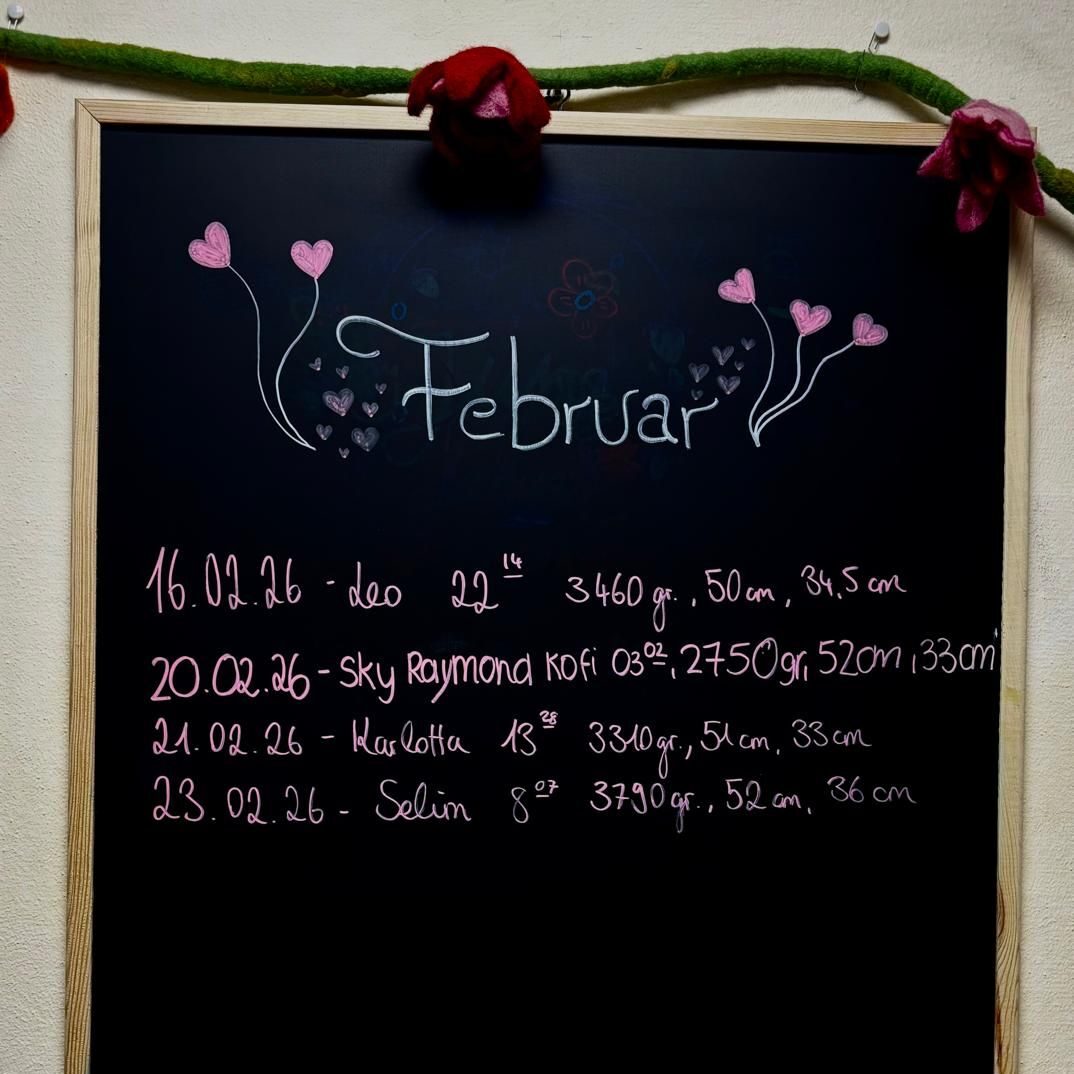 Februar
16.02.26 - Leo 22 14 3460 gr., 50 cm, 34,5 cm
20.02.26 - Sky Raymond Kofi 03 02, 2750gr, 52cm, 33cm
21.02.26 - Karlotta 13 28 3310 gr., 51 cm, 33 cm
23.02.26 - Selim 8 07 3790 gr., 52 cm, 36 cm